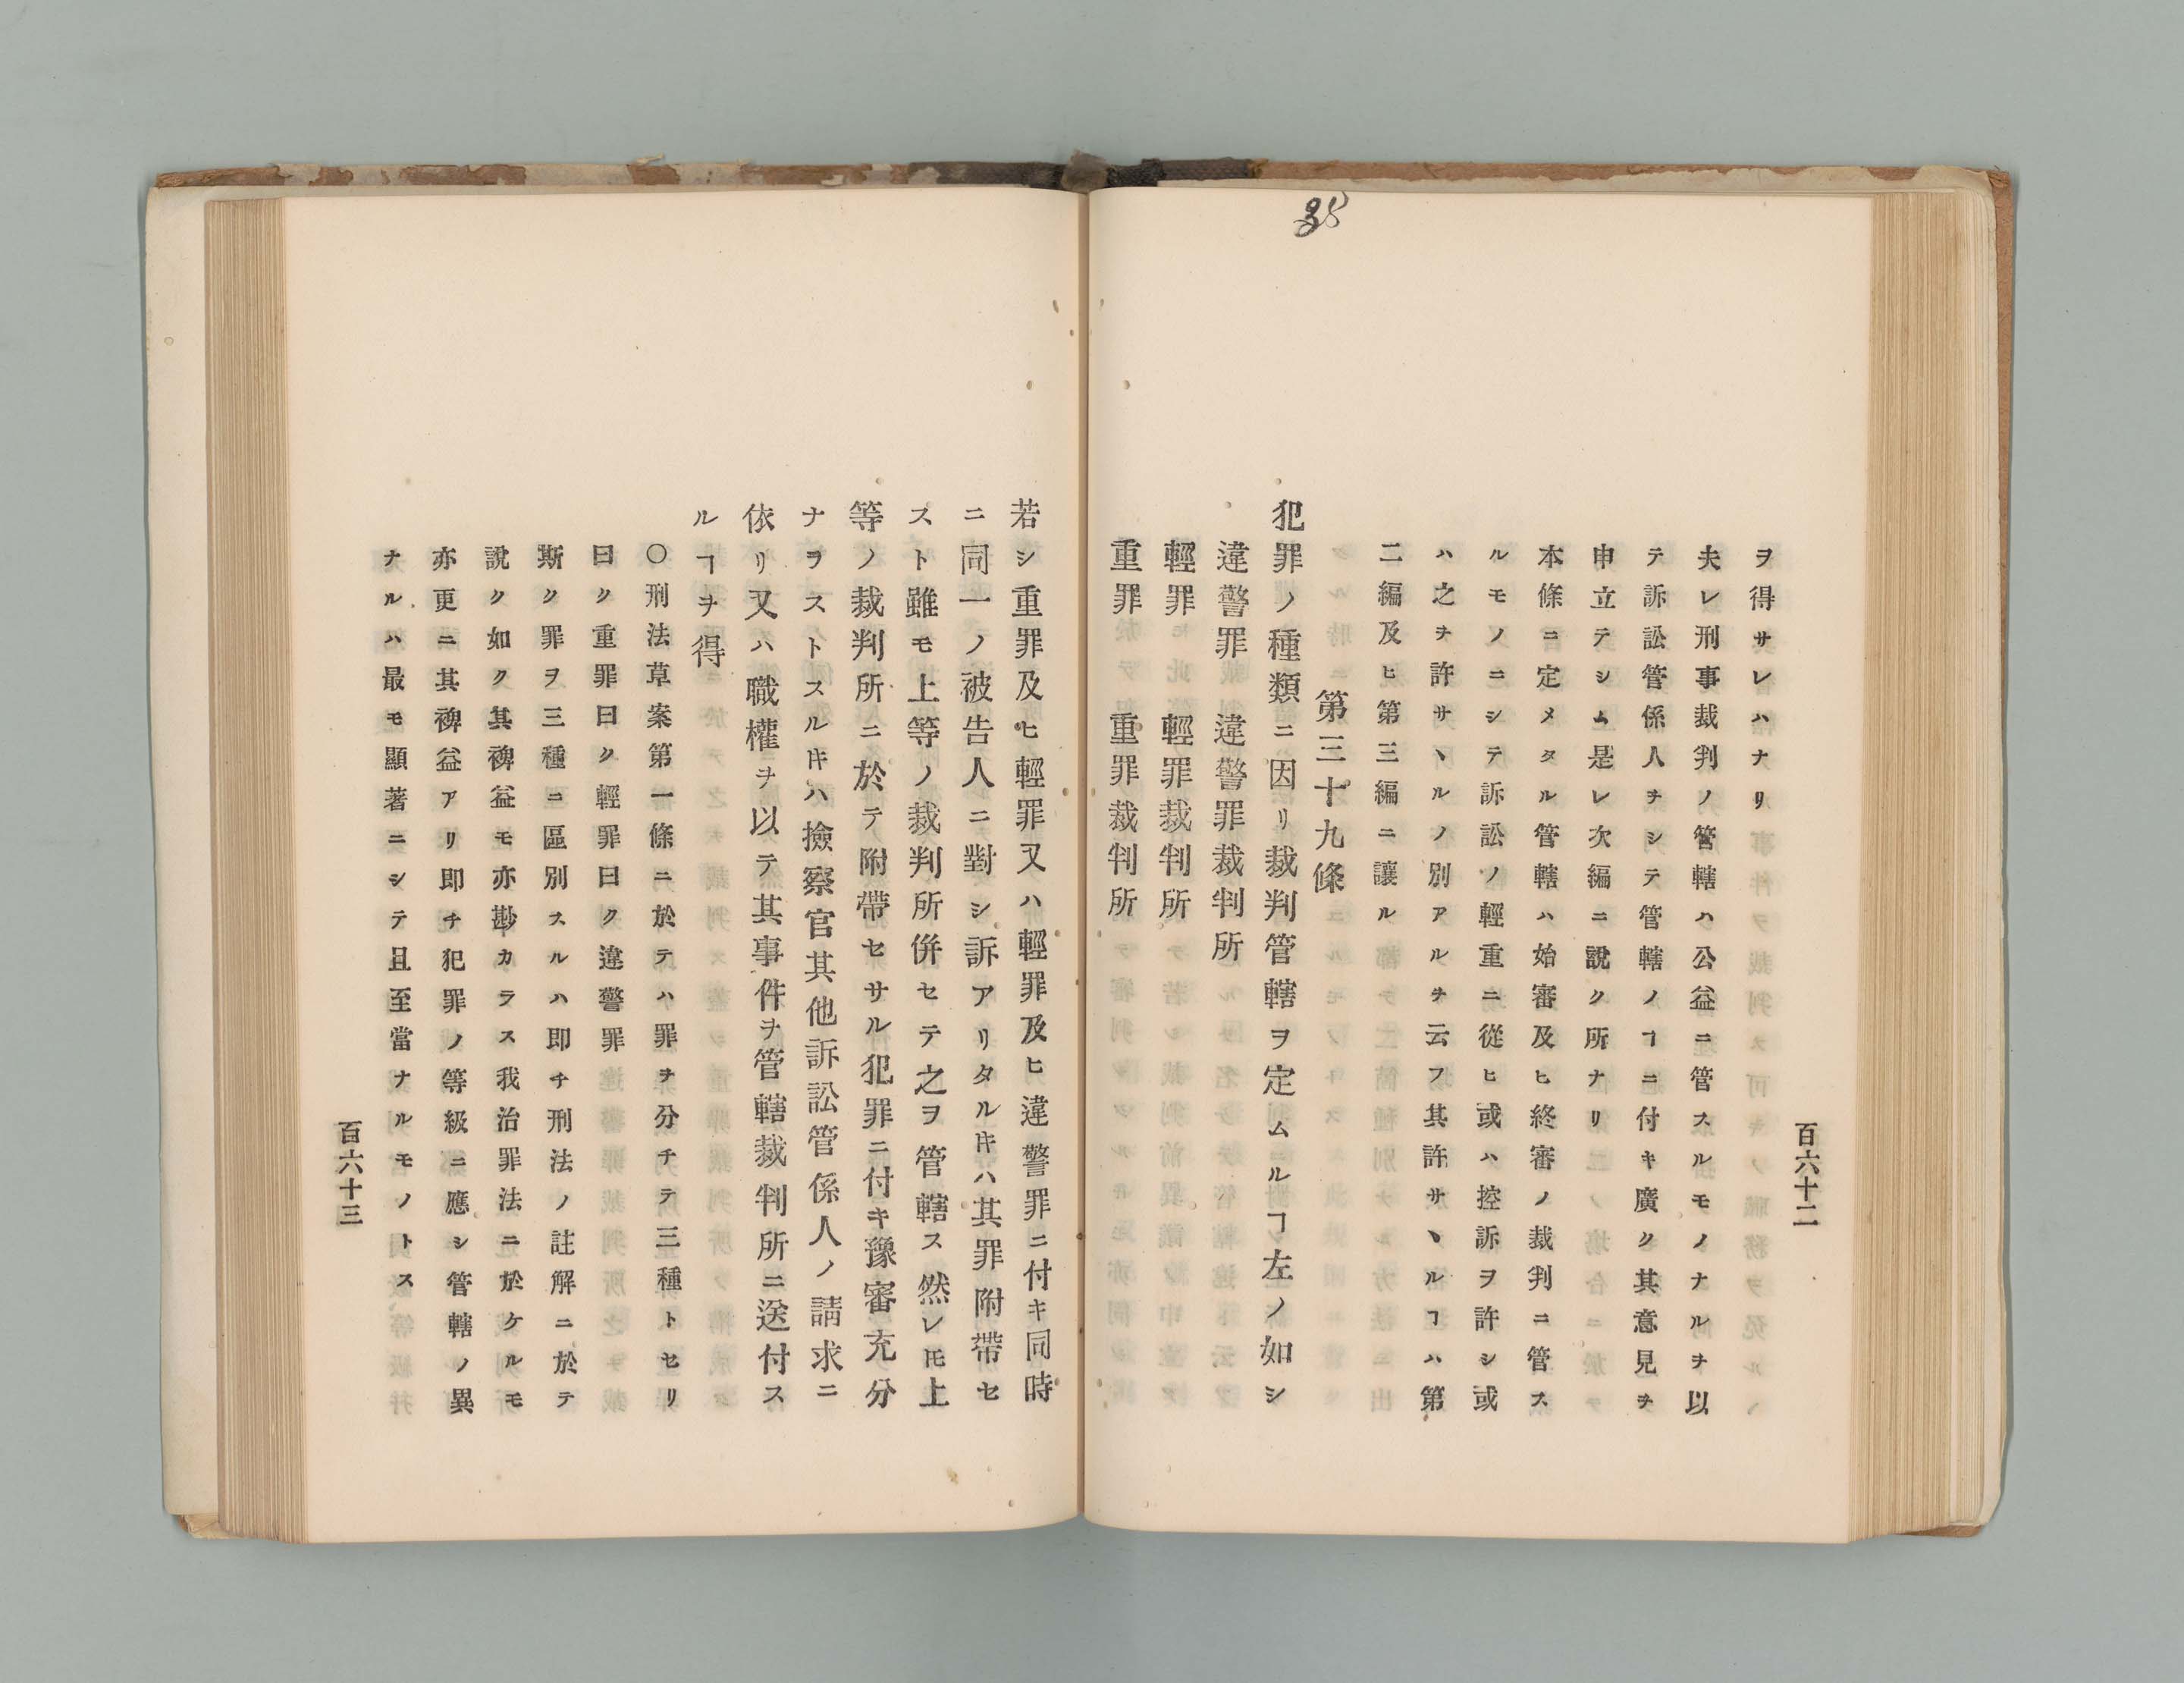 38
ヲ得サレハナリ
夫レ刑事裁判ノ管轄ハ公益ニ管スルモノナルヲ以
テ訴訟管係人ヲシテ管轄ノヿニ付キ廣ク其意見ヲ
申立テシム是レ次編ニ說ク所ナリ
本條ニ定メタル管轄ハ始審及ヒ終審ノ裁判ニ管ス
ルモノニシテ訴訟ノ輕重ニ從ヒ或ハ控訴ヲ許シ或
ハ之ヲ許サヽルノ別アルヲ云フ其許サヽルヿハ第
二編及ヒ第三編ニ讓ル
第三十九條
犯罪ノ種類ニ因リ裁判管轄ヲ定ムルヿ左ノ如シ
違警罪　違警罪裁判所
輕罪　輕罪裁判所
重罪　重罪裁判所
百六十二
若シ重罪及ヒ輕罪又ハ輕罪及ヒ違警罪ニ付キ同時
ニ同一ノ被告人ニ對シ訴アリタル𪜈ハ其罪附帶セ
スト雖モ上等ノ裁判所併セテ之ヲ管轄ス然レ𪜈上
等ノ裁判所ニ於テ附帶セサル犯罪ニ付キ豫審充分
ナヲストスル𪜈ハ撿察官其他訴訟管係人ノ請求ニ
依リ又ハ職權ヲ以テ其事件ヲ管轄裁判所ニ送付ス
ルヿヲ得
〇刑法草案第一條ニ於テハ罪ヲ分チテ三種トセリ
曰ク重罪曰ク輕罪曰ク違警罪
斯ク罪ヲ三種ニ區別スルハ即チ刑法ノ註解ニ於テ
說ク如ク其裨益モ亦尠カラス我治罪法ニ於ケルモ
亦更ニ其裨益アリ即チ犯罪ノ等級ニ應シ管轄ノ異
ナルハ最モ顯著ニシテ且至當ナルモノトス
百六十三